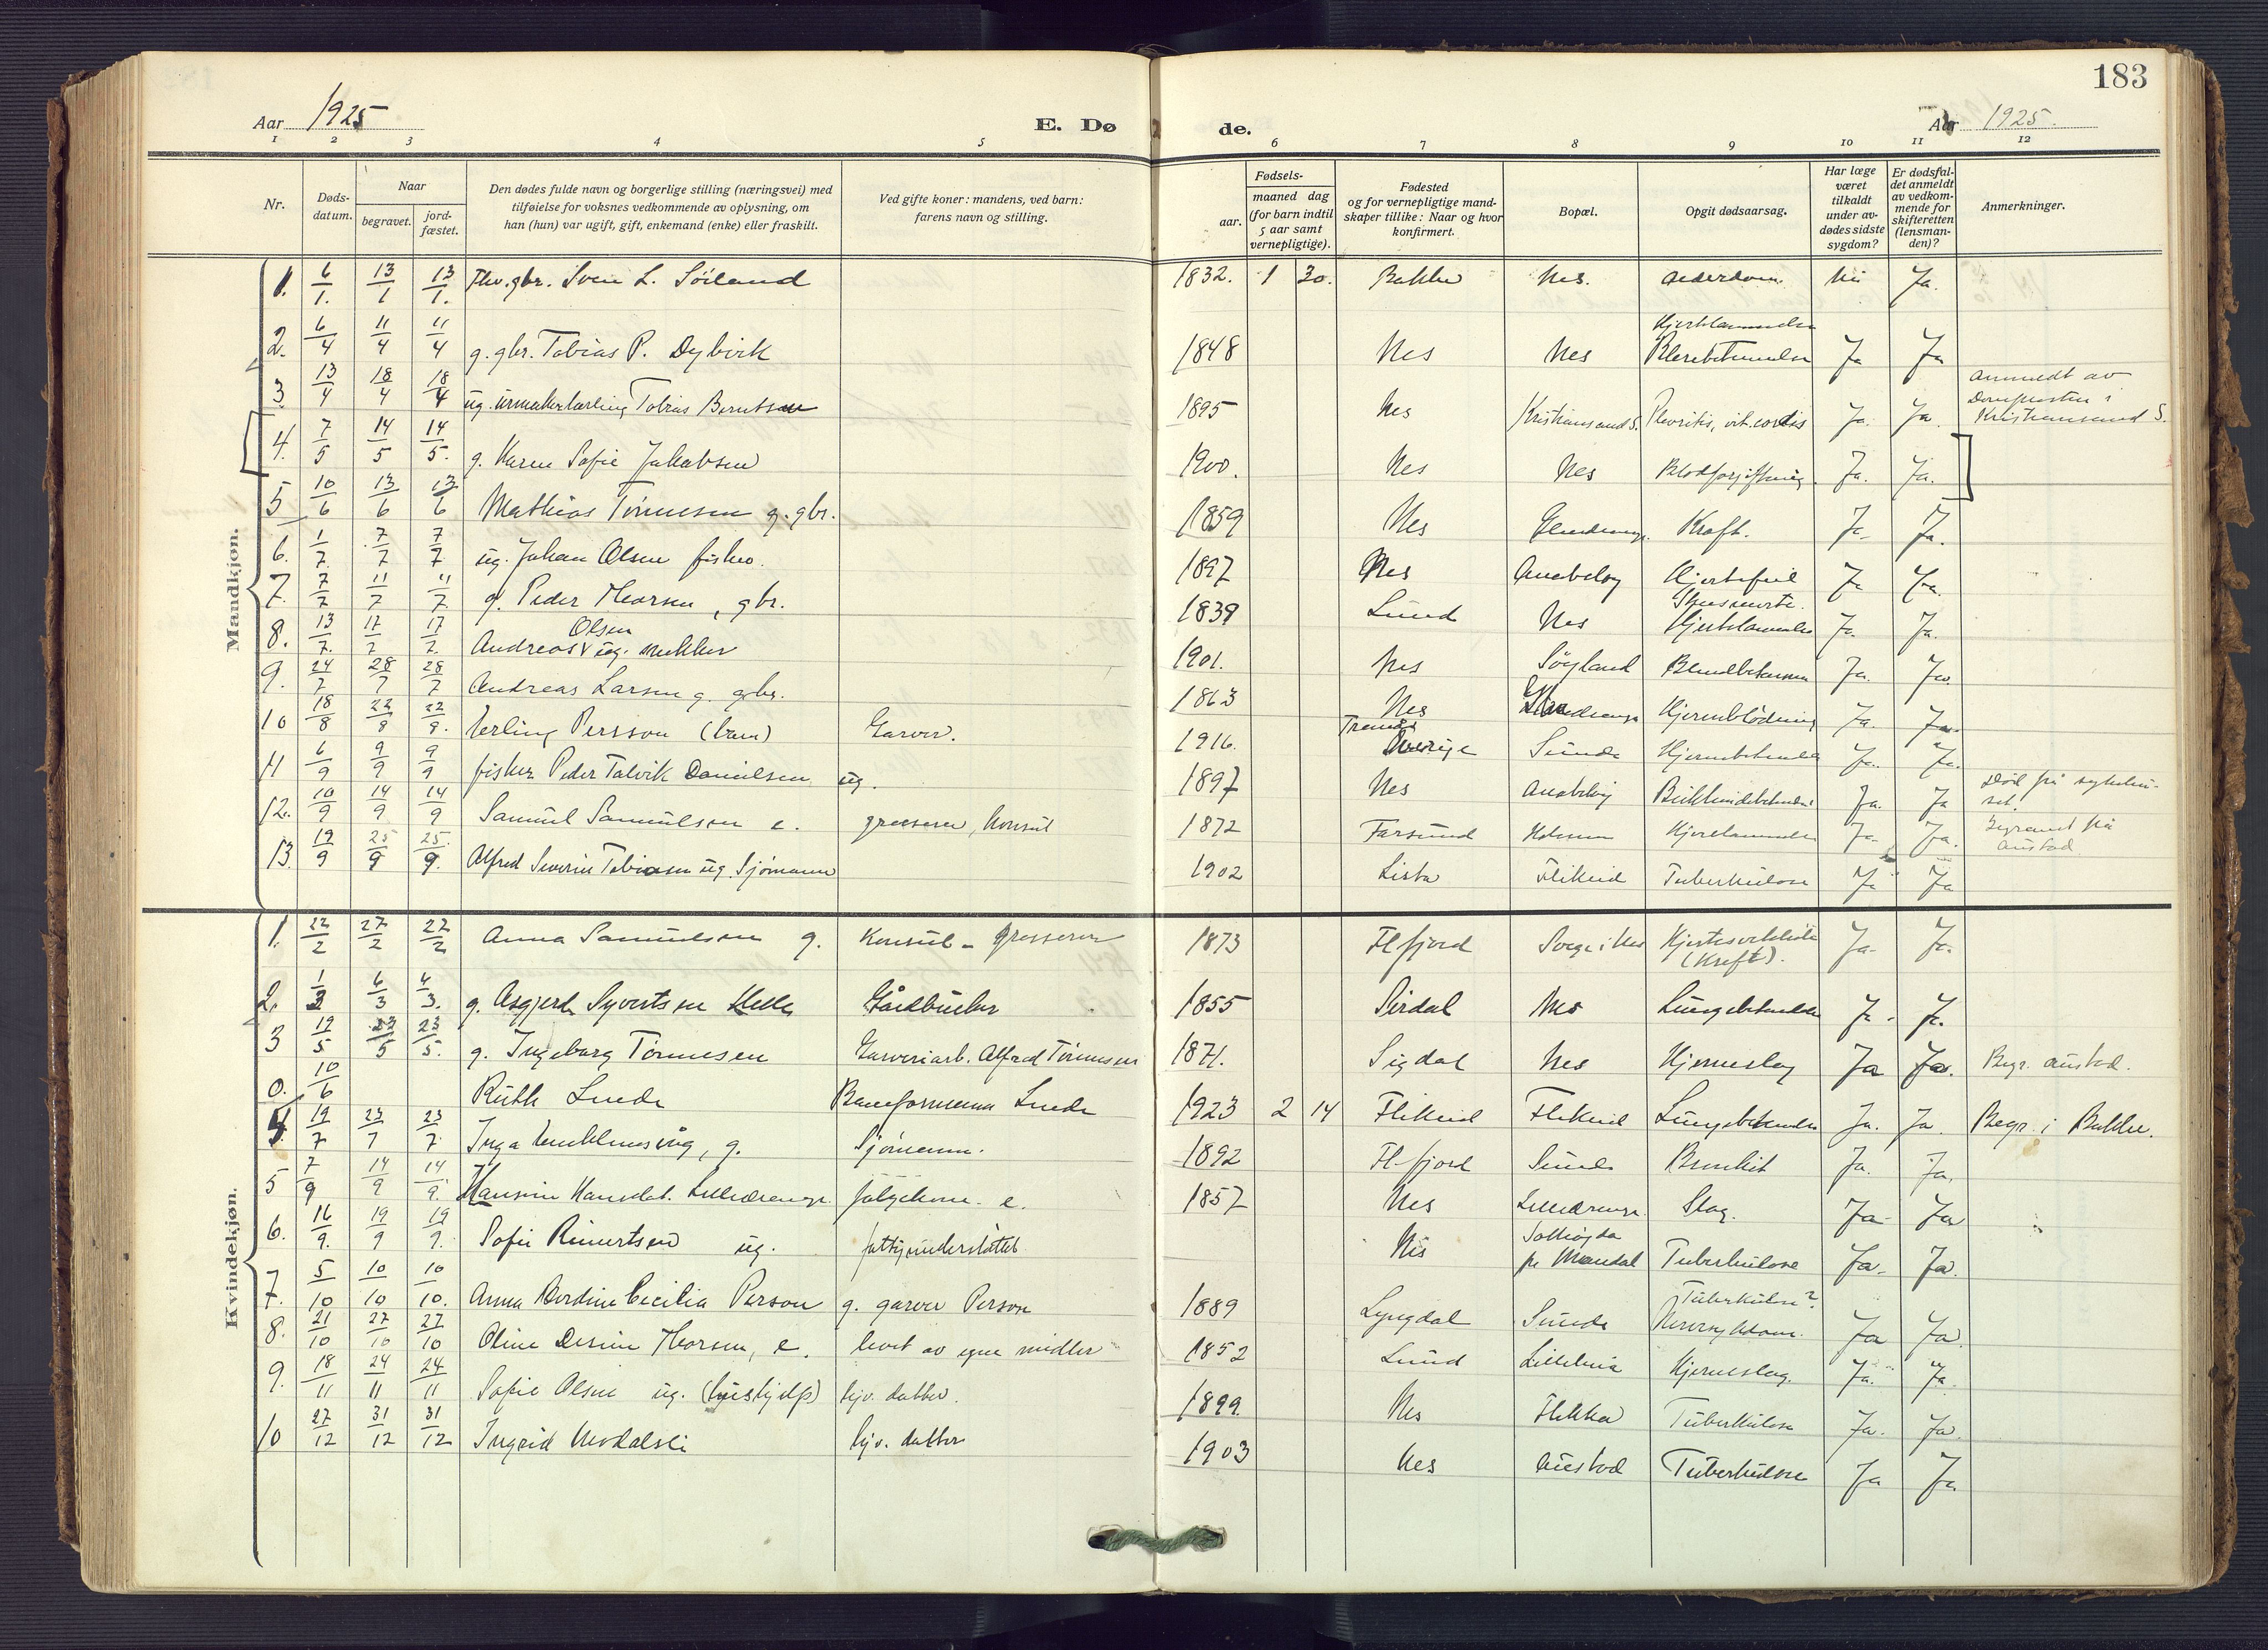 183
Aar 1925
E. Dø de.
Aar 1925.
1 2 3 4 5 6 7 8 9 10 11 12
Nr.
Døds-
datum.
Naar
begravet.
jord-
fæstet.
Den dødes fulde navn og borgerlige stilling (næringsvei) med
tilføielse for voksnes vedkommende av oplysning, om
han (hun) var ugift, gift, enkemand (enke) eller fraskilt.
Ved gifte koner: mandens, ved barn:
farens navn og stilling.
Fødsels-
aar.
maaned dag
(for barn indtil
5 aar samt
vernepligtige).
Fødested
og for vernepligtige mand-
skaper tillike: Naar og hvor
konfirmert.
Bopæl.
Opgit dødsaarsag.
Har læge
været
tilkaldt
under av-
dødes sidste
sygdom?
Er dødsfal-
det anmeldt
av vedkom-
mende for
skifteretten
(lensman-
den)?
Anmerkninger.
Mandkjøn.
1. 6/1. 13/1 13/1. Fhv. gbr. Sven L. Söiland 1832. 1 30. Bakke Nes. Alderdom. Nei Ja.
2. 6/4 11/4 11/4 g. gbr. Tobias P. Dybvik 1848 Nes Nes Ja Ja
3 13/4 18/4 18/4 ug. urmakerlærling Tobias Berntsen 1895 Nes Kristiansand S. Plevritis, vit. cordis Ja. Ja. anmeldt av
Domprosten i
Kristiansand S.
4. 7/5 14/5 14/5. g. Karen Sofie Jakobsen 1900. Nes Nes Blodforgiftning. Ja. Ja.
5 10/6 13/6 13/6 Mathias Tönnesen g. gbr. 1859 Nes Kræft. Ja. Ja.
6. 1/7. 7/7 7/7. ug. Johan Olsen fisker. 1897 Nes Anabeløy Hjertefeil Ja Ja.
7. 7/7 11/7 11/7 g. Peder Thorsen, gbr. 1839 Lund Nes Ja. Ja.
8. 13/7. 17/7 17/7. Andreas Olsen ug. snekker 1901. Nes Söyland Ja. Ja.
9. 24/7 28/7 28/7 Andreas Larsen g. gbr. 1863 Nes Hjerneblödning Ja. Ja.
10 18/8 22/8 22/8. Erling Persson (barn) Garver. 1916. Sverige Sunde Ja. Ja.
11 6/9 9/9 9/9 fisker Peder Talvik Danielsen ug. 1897 Nes Anabeløy Ja. Ja död på sykehu-
set.
12. 10/9 14/9 14/9 Samuel Samuelsen e. grosserer, Konsul 1872 Farsund Hjertelammelse Ja. Ja. på
Austad.
13. 19/9 25/9 25./9. Alfred Severin Tobiasen ug. Sjömann 1902 Lista Flikeid Tuberkulose Ja Ja
Kvindekjøn.
1. 22/2 27/2 27/2 Anna Samuelsen g. Konsul - Grosserer 1873 Flfjord (Kreft). Ja. Ja.
2. 1/3 6/3 4/3. g. Asgjerd Syvertsen Helle Gårdbruker 1855 Sirdal Nes Lungebetendelse Ja. Ja.
3 19/5 23/5 23/5. g. Ingeborg Tönnesen Garveriarb. Alfred Tönnesen 1871. Sigdal Nes Hjerneslag Ja Ja. Begr. Austad.
0. 10/6 Ruth Lunde Baneformann Lunde 1923 2 14 Flikeid Flikeid Lungebetendelse Ja. Ja. Begr. i Bakke.
4. 19/7 23/7 23/7 g. Sjömann. 1892 Flfjord Sunde Ja. Ja.
5 7/9 14/9 14/9. e. 1857 Nes Slag. Ja Ja
6. 16/9. 19/9 19/9. Sofie Reinertsen ug. fattigunderstöttet Nes
pr Mandal Tuberkulose Ja. Ja.
7. 5/10 10/10 10/10. Anna Bordine Cecilia Person g. garver Person 1889 Lyngdal Sunde Tuberkulose?
Nervesykdom. Ja Ja.
8. 21/10 27/10 27/10 Oline Thorsen, e. levet av egne midler 1852 Lund Hjerneslag. Ja. Ja.
9. 18/11 24/11 24/11 Sofie Olsen ug. (hushjelp) hjv. datter. 1899. Nes Flekke Tuberkulose Ja. Ja.
10 27/12 31/12 31/12 Ingrid hjv. datter 1903 Nes Austad Tuberkulose Ja Ja